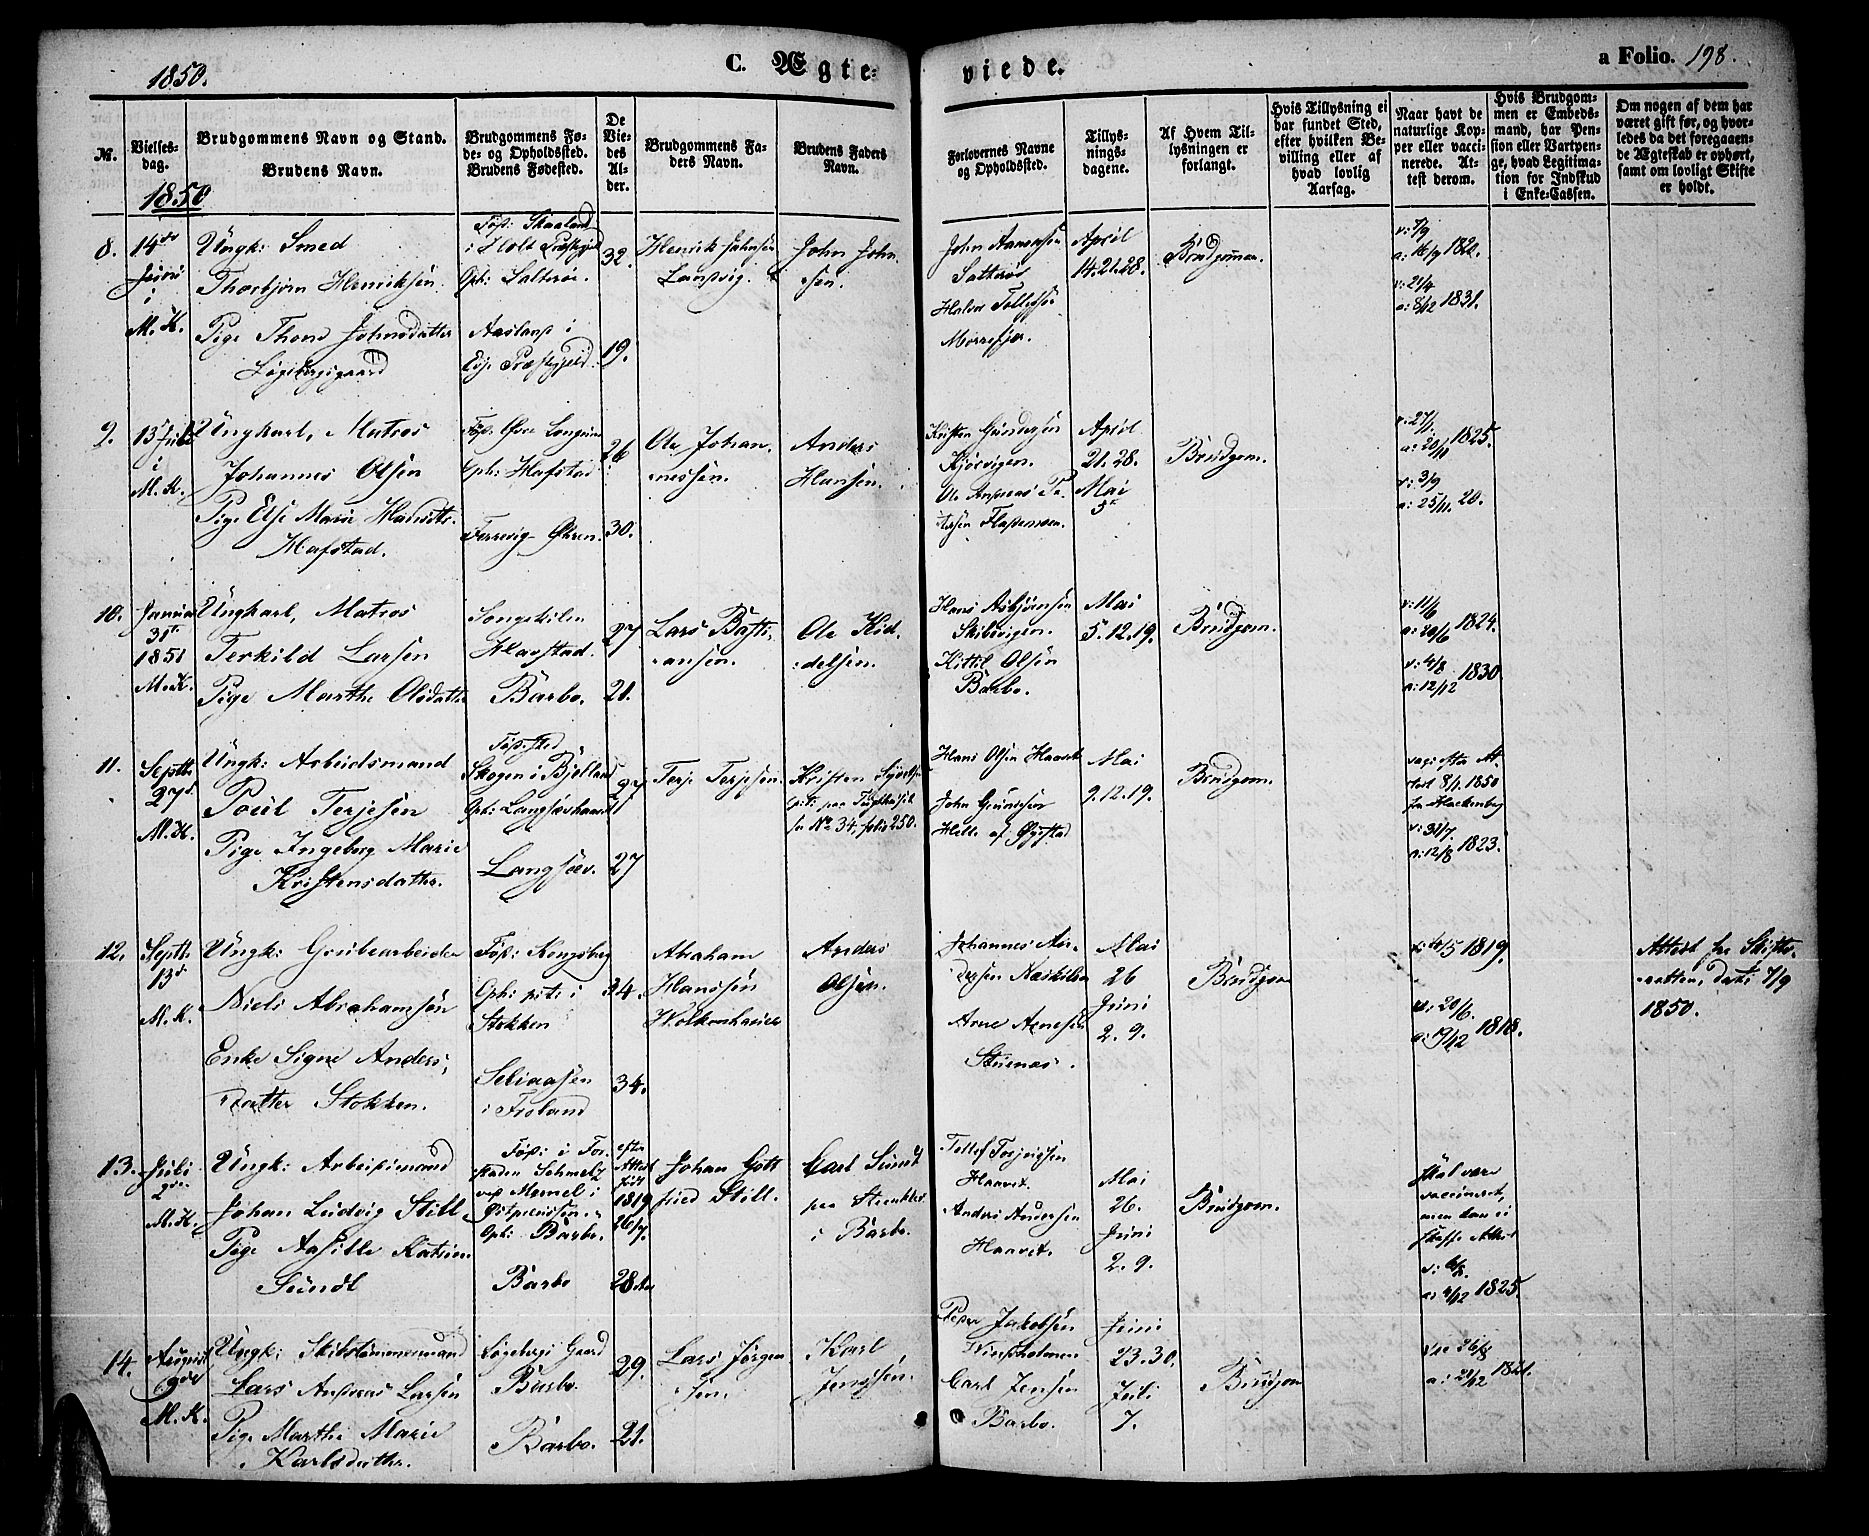 1850.
C. Ægte-
viede.
a Folio. 198.
№.
Vielses-
dag.
Brudgommens Navn og Stand.
Brudens Navn.
Brudgommens Fø-
de- og Opholdssted.
Brudens Fødested.
De
Vie-
des
Al-
der.
Brudgommens Fa-
ders Navn.
Brudens Faders
Navn.
Forlovernes Navne
og Opholdssted.
Tillys-
nings-
dagene.
Af Hvem Til-
lysningen er
forlangt.
Hvis Tillysning ei
har fundet Sted,
efter hvilken Be-
villing eller af
hvad lovlig
Aarsag.
Naar havt de
naturlige Kop-
per eller vacci-
nerede. At-
test derom.
Hvis Brudgom-
men er Embeds-
mand, har Pen-
sion eller Vartpen-
ge, hvad Legitima-
tion for Indskud
i Enke-Cassen.
Om nogen af dem har
været gift før, og hvor-
ledes da det foregaaen-
de Ægteskab er ophørt,
samt om lovligt Skifte
er holdt.
1850
8.
14de
Juni
i
M. K.
Ungk: Smed
Thorbjørn Henriksen
Pige Thone Johnsdatter
Løgebergsgaard
Fød: Skaaland
i Holt Præstegjeld
Oph: Salterøe.
Aaslans i
Eije Præstegjeld
32.
19.
Henrik Jahnsen
Langvig.
John John-
sen.
John Aanensen
Salterøe
Halvor Tellefsen
Morrefjær.
April
14. 21. 28.
Brudgommen.
v: 7/9
a: 16/9 1820.
v: 21/4
a: 8/12 1831.
9.
13de Juli
i
M. K.
Ungkarl, Matros
Johannes Olsen
Pige Else Marie Handts.
Hafstad.
Fød: Øvre Longum
Oph: Hafstad
Færevig Øhren.
26
30.
Ole Johan-
nessen.
Anders
Hansen.
Kristen Gundersen
Kjørvigen.
Ole Andreas Pe-
tersen Flademoen.
April
21. 28.
Mai
5te
Brudgom.
v: 27/1.
a: 20/11 1825.
v: 3/9
a: 25/11. 20.
10.
Januar
31te
1851
M. K.
Ungkarl, Matros
Terkild Larsen
Pige Marthe Olsdatter
Songekilen
Havstad.
Barbo.
27
21.
Lars Basti-
ansen.
Ole Kid-
delsen.
Hans Asbjørnsen
Skibvigen.
Kittil Olsen
Barbo.
Mai
5. 12. 19.
Brudgom.
v: 11/6
a: 20/6 1824.
v: 4/8
a: 12/12 1830
11.
Septbr
27de
M. K.
Ungk: Arbeidsmand
Poul Terjesen
Pige Ingeborg Marie
Kristensdatter.
Fødested
Skogen i Bjelland
Oph: Langsævhaven
Langsæv.
27
27
Terje Terjesen.
Kristen
No 34, folio 250.
Hans Olsen Haavet
John Gundersen
Hille af Øyestad
Mai
9. 12. 19.
Brudgom.
vac: efter At-
test 8/1 1850
fra Hackenberg
v: 31/7.
a: 12/8 1823.
12.
Septbr
13de
M. K.
Ungk: Grubearbeider
Niels Abrahamsen
Enke Signe Anders-
datter Stokken.
Fød: Kongsberg
Oph: pt: i
Stokken
Selaasen
i Froland
34.
34.
Abraham
Hanssen
Holkenhauer
Anders
Olsen.
Johannes An-
dersen Næskilen
Arne Arnesen
Stuenæs.
Mai
26
Juni
2. 9.
Brudgom
v: 10/5 1819.
v: 20/6.
a: 19/12 1818.
Attest fra Skifte-
retten, dat: 7/9
1850.
13.
Juli
2den
M. K.
Ungk: Arbeidsmand
Johan Ludvig Still
Pige Aasille Katrine
Sundt
Fød: i For-
staden Schmeltz
ved Memel i
Østpreussen.
Oph: Barbo.
Barbo
efter
Attest
født
1819
26/7.
28de
Johan Gott
fried Still.
Carl Sundt
paa Steenklev
i Barbo.
Tellef Torjussen
Haavet.
Anders Andersen
Haavet.
Mai
26.
Juni
2. 9.
Brudgom.
skal være
vaccineret,
men kan ei
skaffe Attest
v: 6/8.
a: 4/12 1825.
14.
August
9de
M. K.
Ungk: Skibstømmermand
Lars Andreas Larsen
Pige Marthe Marie
Karlsdatter.
Løgebergs Gaard
Barbo.
Barbo.
29.
21.
Lars Jørgen-
sen.
Karl
Jenssen.
Peder Jakobsen
Vindholmen
Carl Jensen
Barbo.
Juni
23. 30.
Juli
7.
Brudgom
Vac 26/8
a: 21/12 1821.